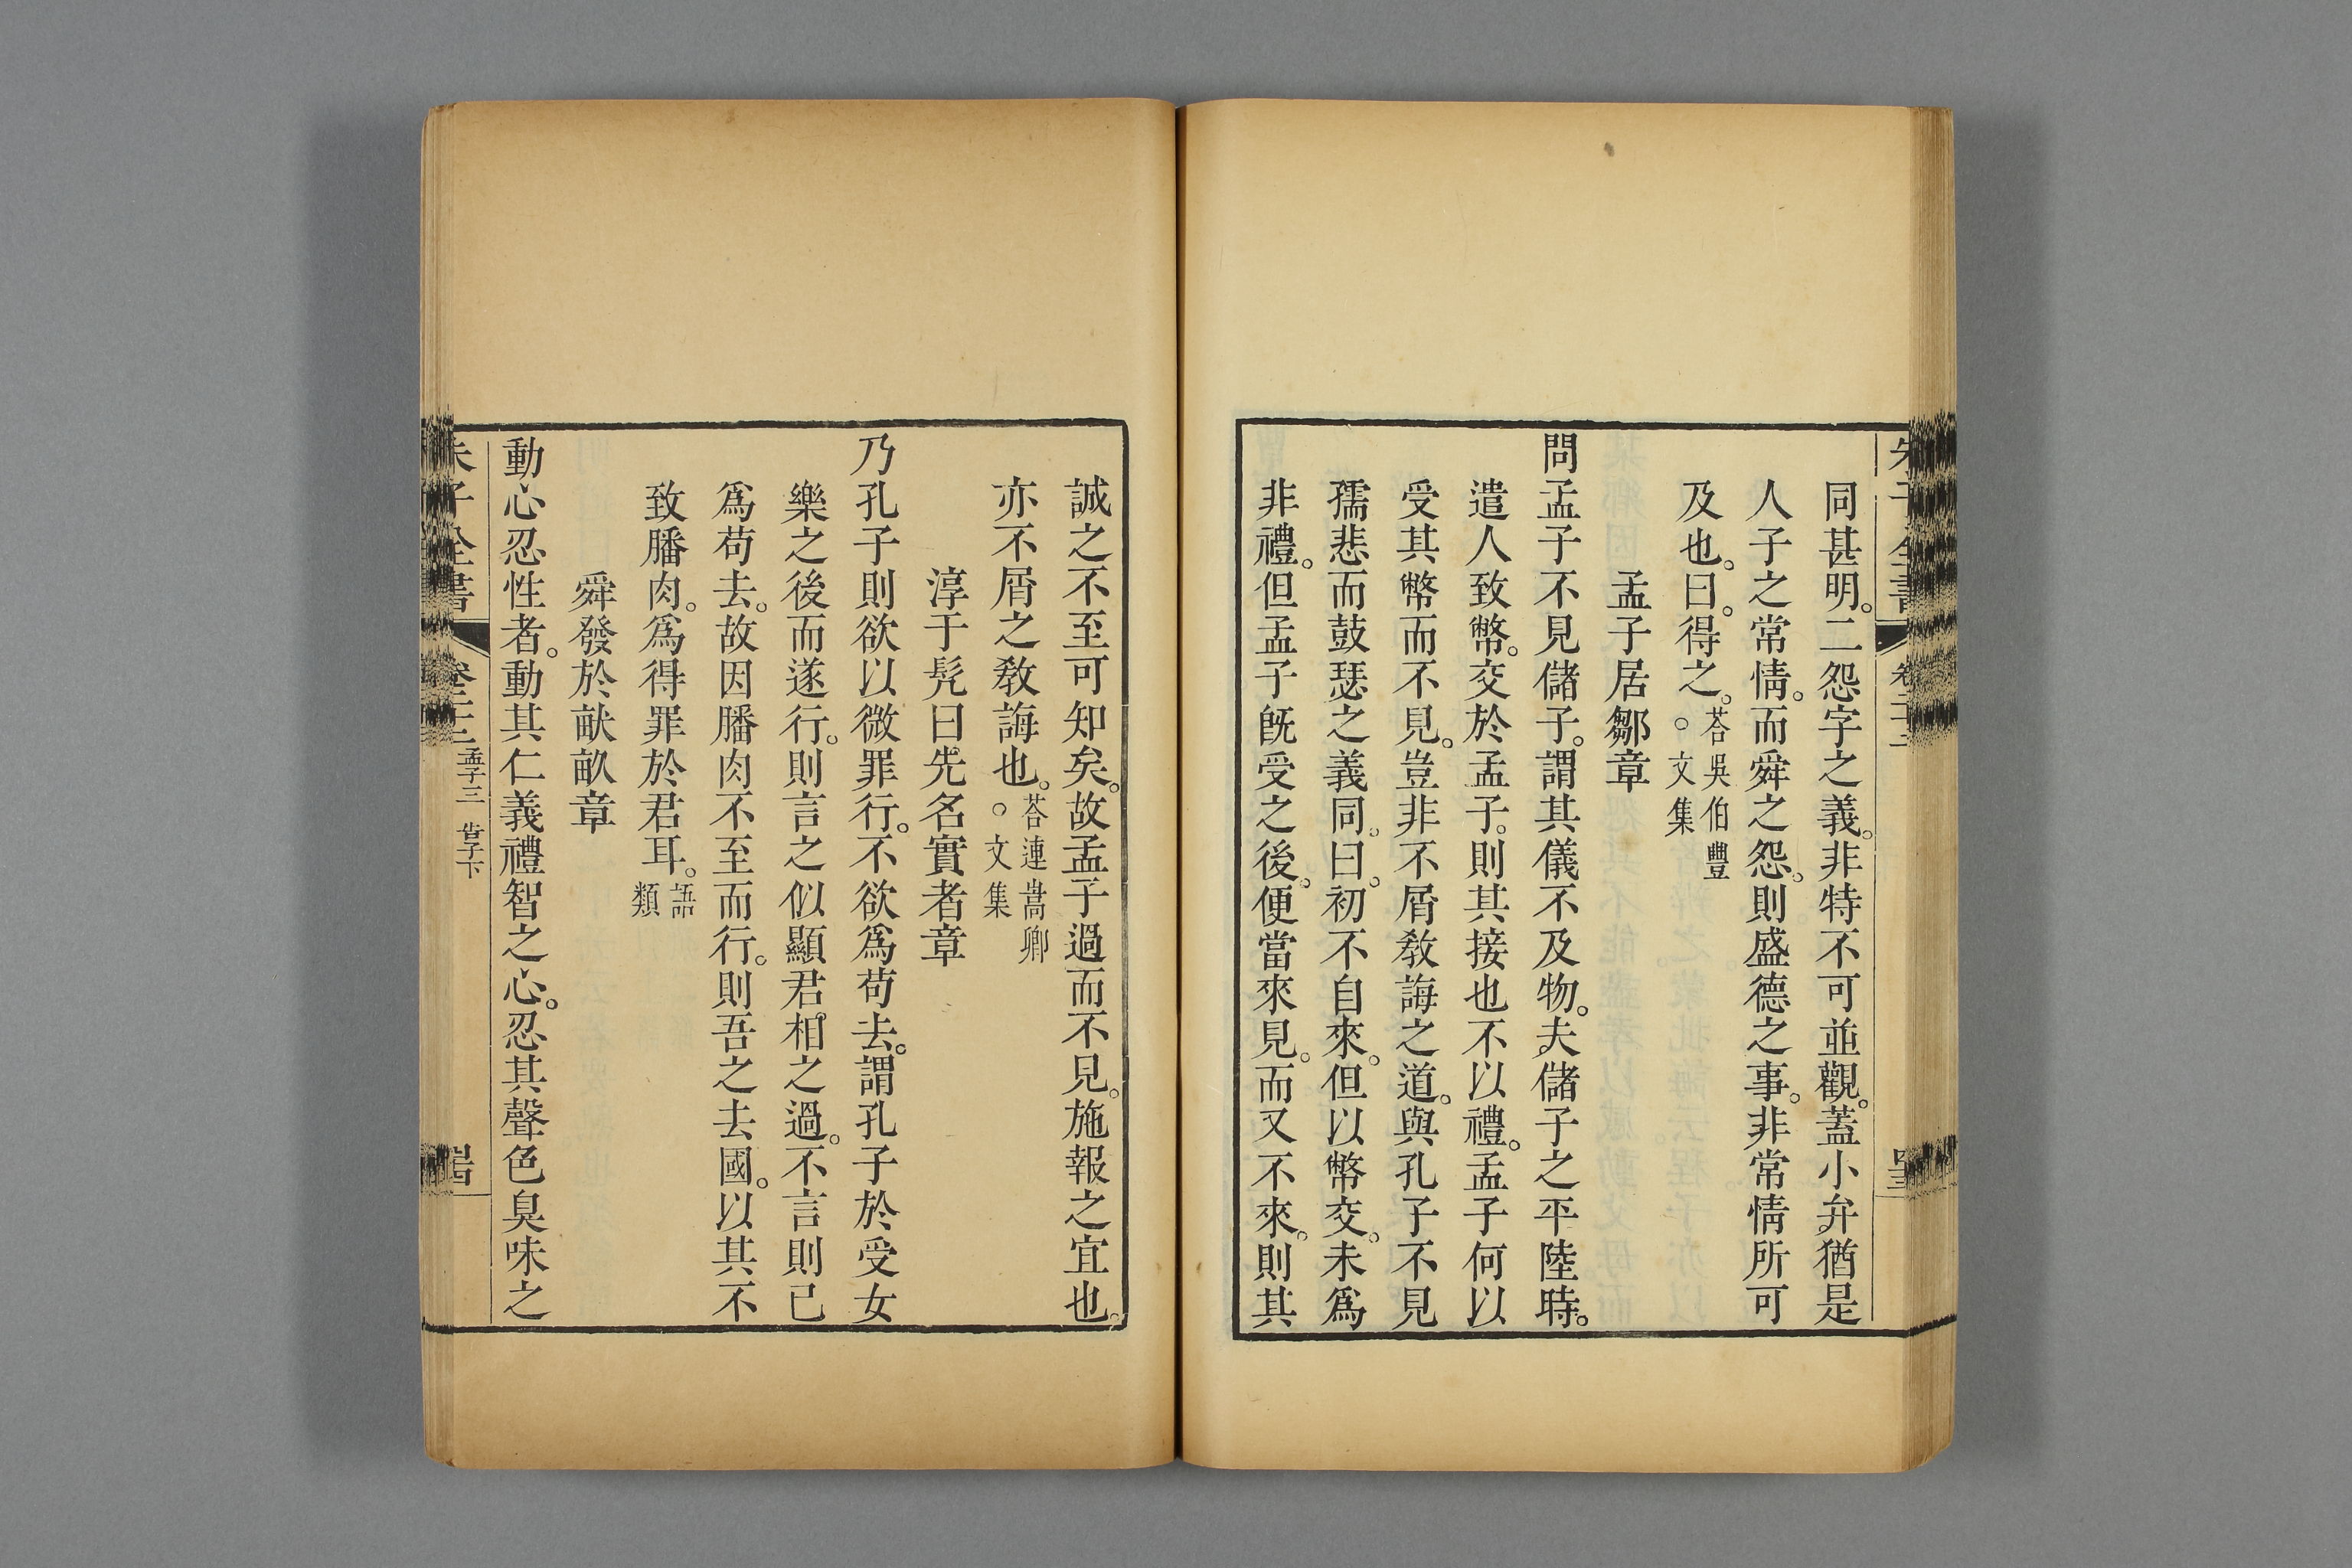 同甚明。二怨字之義。非特不可並觀。蓋小弁猶是
人子之常情。而舜之怨。則盛德之事。非常情所可
及也。曰。得之。答吳伯豐
。文集
孟子居鄒章
問孟子不見儲子。謂其儀不及物。夫儲子之平陸時。
遣人致幣。交於孟子。則其接也不以禮。孟子何以
受其幣而不見。豈非不屑敎誨之道。與孔子不見
孺悲而鼓瑟之義同。曰。初不自來。但以幣交。未爲
非禮。但孟子旣受之後。便當來見。而又不來。則其
誠之不至可知矣。故孟子過而不見。施報之宜也。
亦不屑之敎誨也。答連嵩卿
。文集
淳于髠曰先名實者章
乃孔子則欲以微罪行。不欲爲苟去。謂孔子於受女
樂之後而遂行。則言之似顯君相之過。不言則己
爲苟去。故因膰肉不至而行。則吾之去國。以其不
致膰肉。爲得罪於君耳。語
類
舜發於畎畝章
動心忍性者。動其仁義禮智之心。忍其聲色臭味之
孟子三 告子下